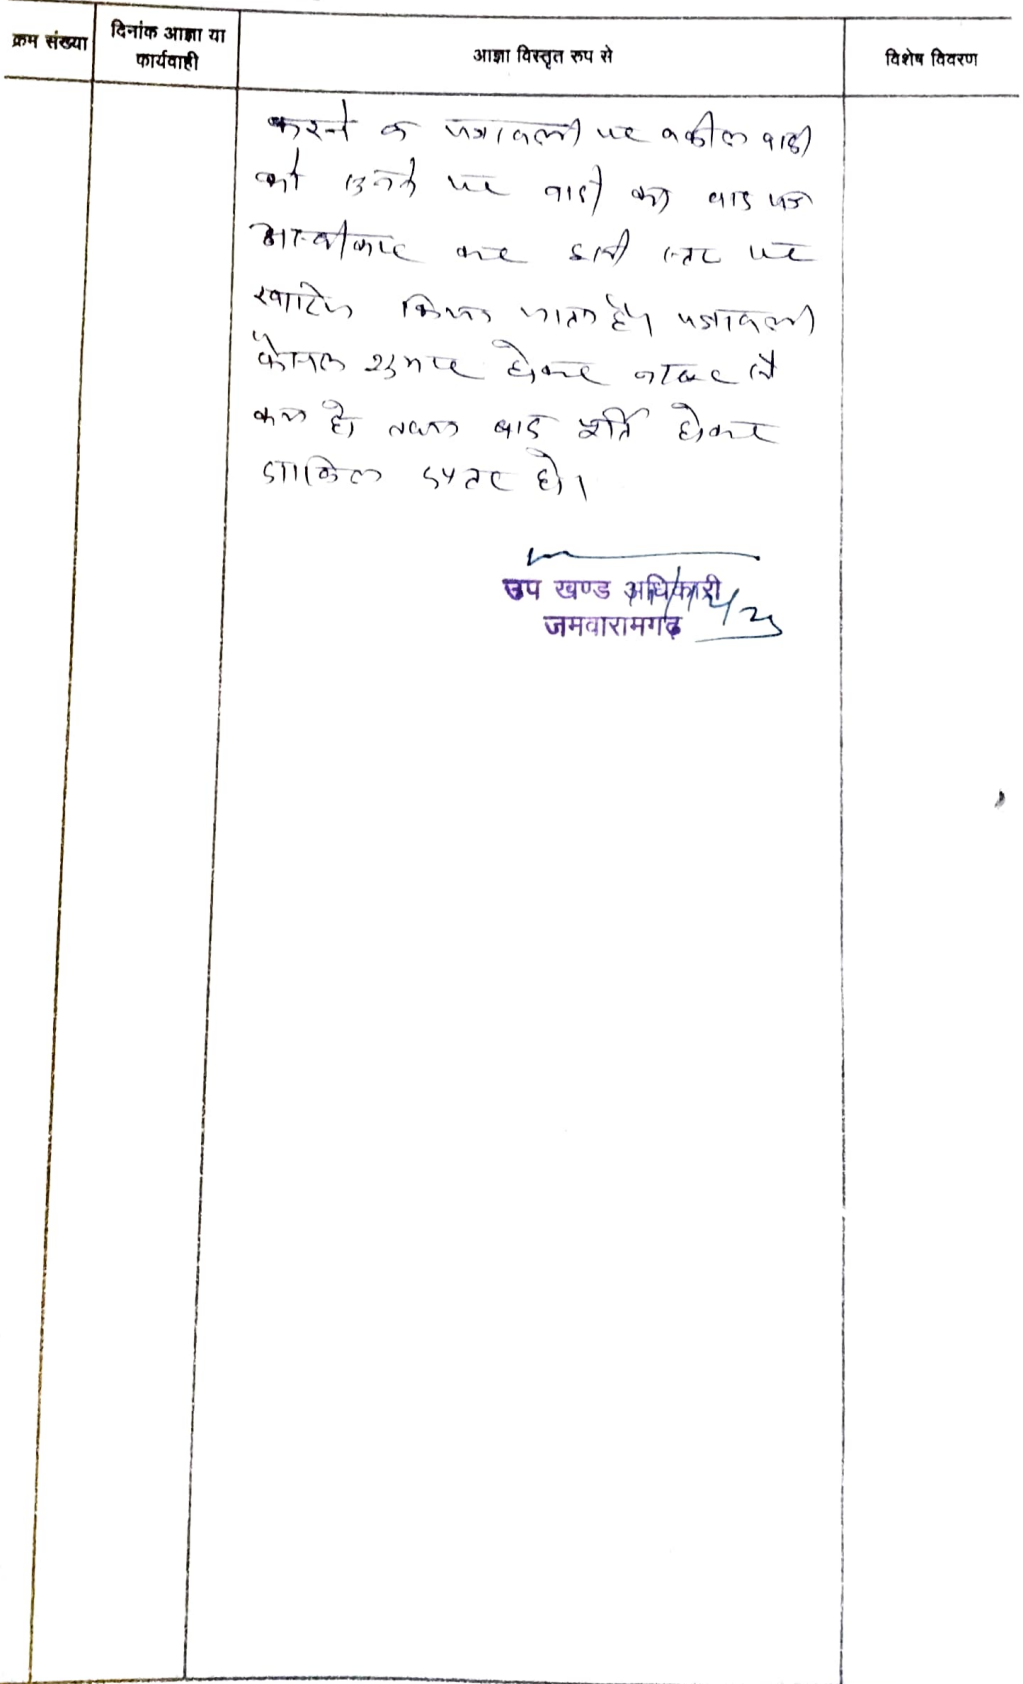 क्रम संख्या
दिनांक आज्ञा या
कार्यवाही
आज्ञा विस्तृत रुप से
विशेष विवरण
करने व पत्रावली पर वकील वादी
को सुनने पर वादी का वाद पत्र
अस्वीकार कर इसी स्तर पर
खारिज किया जाता है। पत्रावली
फैसल शुमार होकर नम्बर से
कम हो। बाद पूर्ति होकर
दाखिल दफ्तर हो।
उप खण्ड अधिकारी
जमवारामगढ